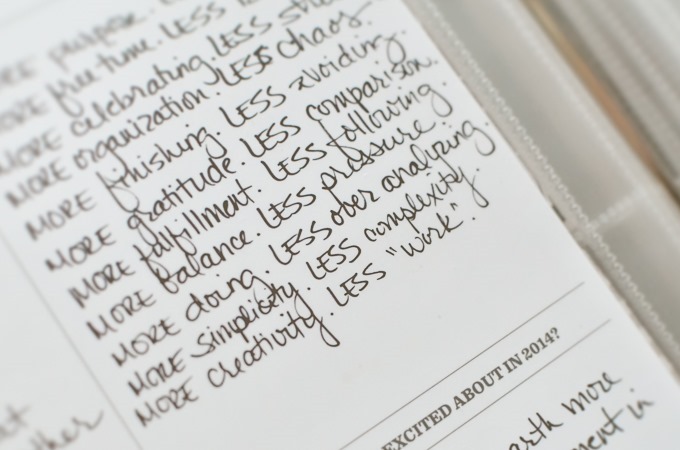 MORE purpose.
MORE free time. LESS
MORE celebrating. LESS
MORE organization. LESS chaos
MORE finishing. LESS avoiding.
MORE gratitude. LESS comparison.
MORE fulfillment. LESS following.
MORE balance. LESS pressure
MORE doing. LESS over analyzing.
MORE simplicity. LESS complexity.
MORE creativity. LESS "work".
EXCITED ABOUT IN 2014?
more
in